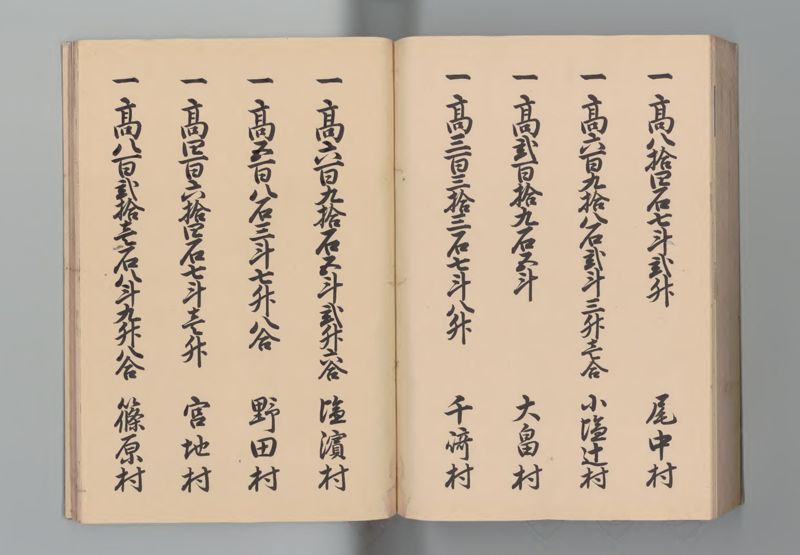 一高八拾四石七斗弐升 尾中村
一高六百九拾八石弐斗三升壱合 小塩辻村
一高弐百拾九石五斗 大畠村
一高三百三拾三石七斗八升 千崎村
一高六百九拾石五斗弐升六合 塩濱村
一高五百八石三斗七升八合 野田村
一高四百六拾四石七斗壱升 宮地村
一高八百弐拾壱石八斗九升八合 篠原村